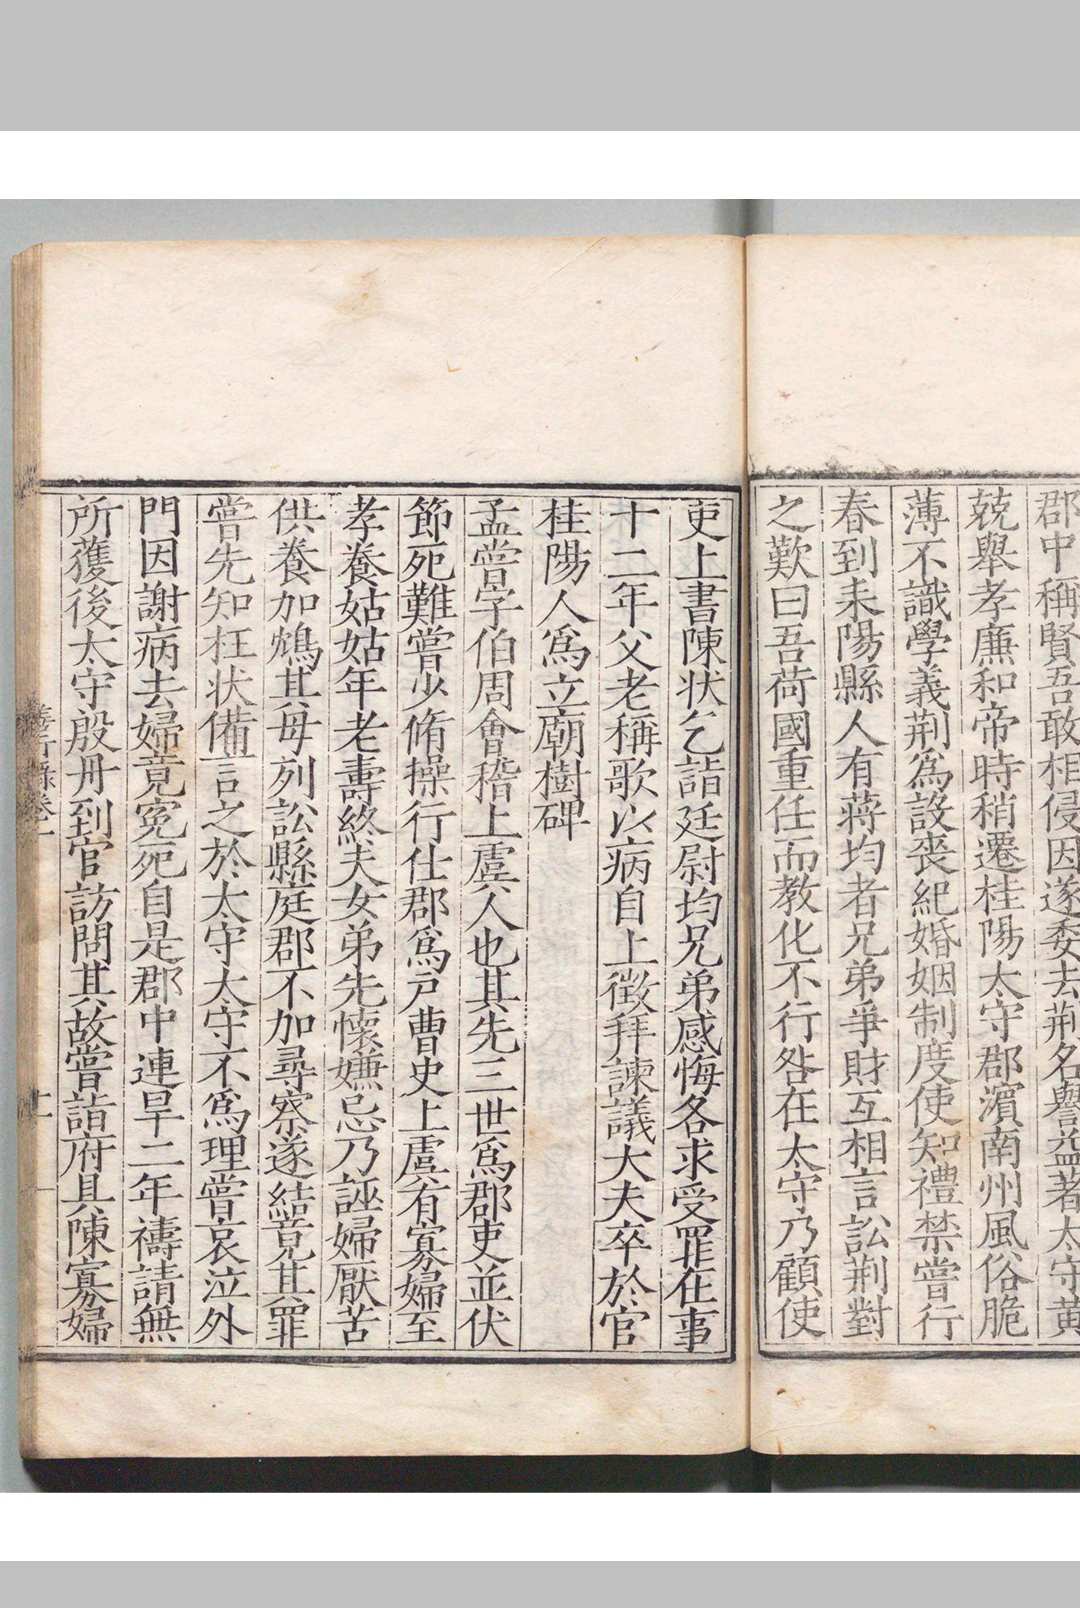 郡中稱賢吾敢相侵因遂委去荆名譽益著太守黄
兢舉孝廉和帝時稍遷桂陽太守郡濱南州風俗脆
薄不識學義荆爲設喪紀婚姻制度使知禮禁嘗行
春到耒陽縣人有蔣均者兄弟爭財互相言訟荆對
之歎曰吾荷國重任而教化不行咎在太守乃顧使
吏上書陳狀乞詣廷尉均兄弟感悔各求受罪在事
十二年父老稱歌以病自上徵拜諫議大夫卒於官
桂陽人爲立廟樹碑
孟嘗字伯周會稽上虞人也其先三世爲郡吏並伏
節死難嘗少脩操行仕郡爲戸曹史上虞有寡婦至
孝養姑姑年老壽終夫女弟先懷嫌忌乃誣婦厭苦
供養加鴆其母列訟縣庭郡不加尋察遂結竟其罪
嘗先知枉状備言之於太守太守不爲理嘗哀泣外
門因謝病去婦竟寃死自是郡中連旱二年禱請無
所獲後太守殷丹到官訪問其故嘗詣府具陳寡婦
善行錄卷一